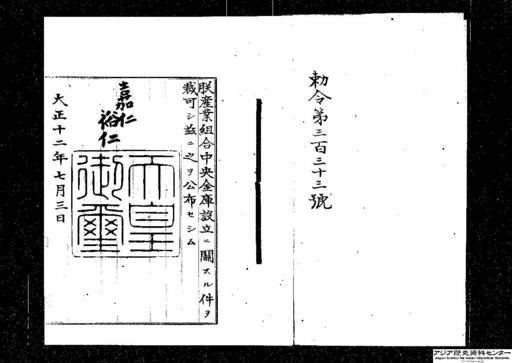 勅令第三百三十三號
朕産業組合中央金庫設立ニ關スル件ヲ
裁可シ茲ニ之ヲ公布セシム
嘉仁
裕仁
天皇
御璽
大正十二年七月三日
アジア歴史資料センター
Japan Center for Asian Historical Records